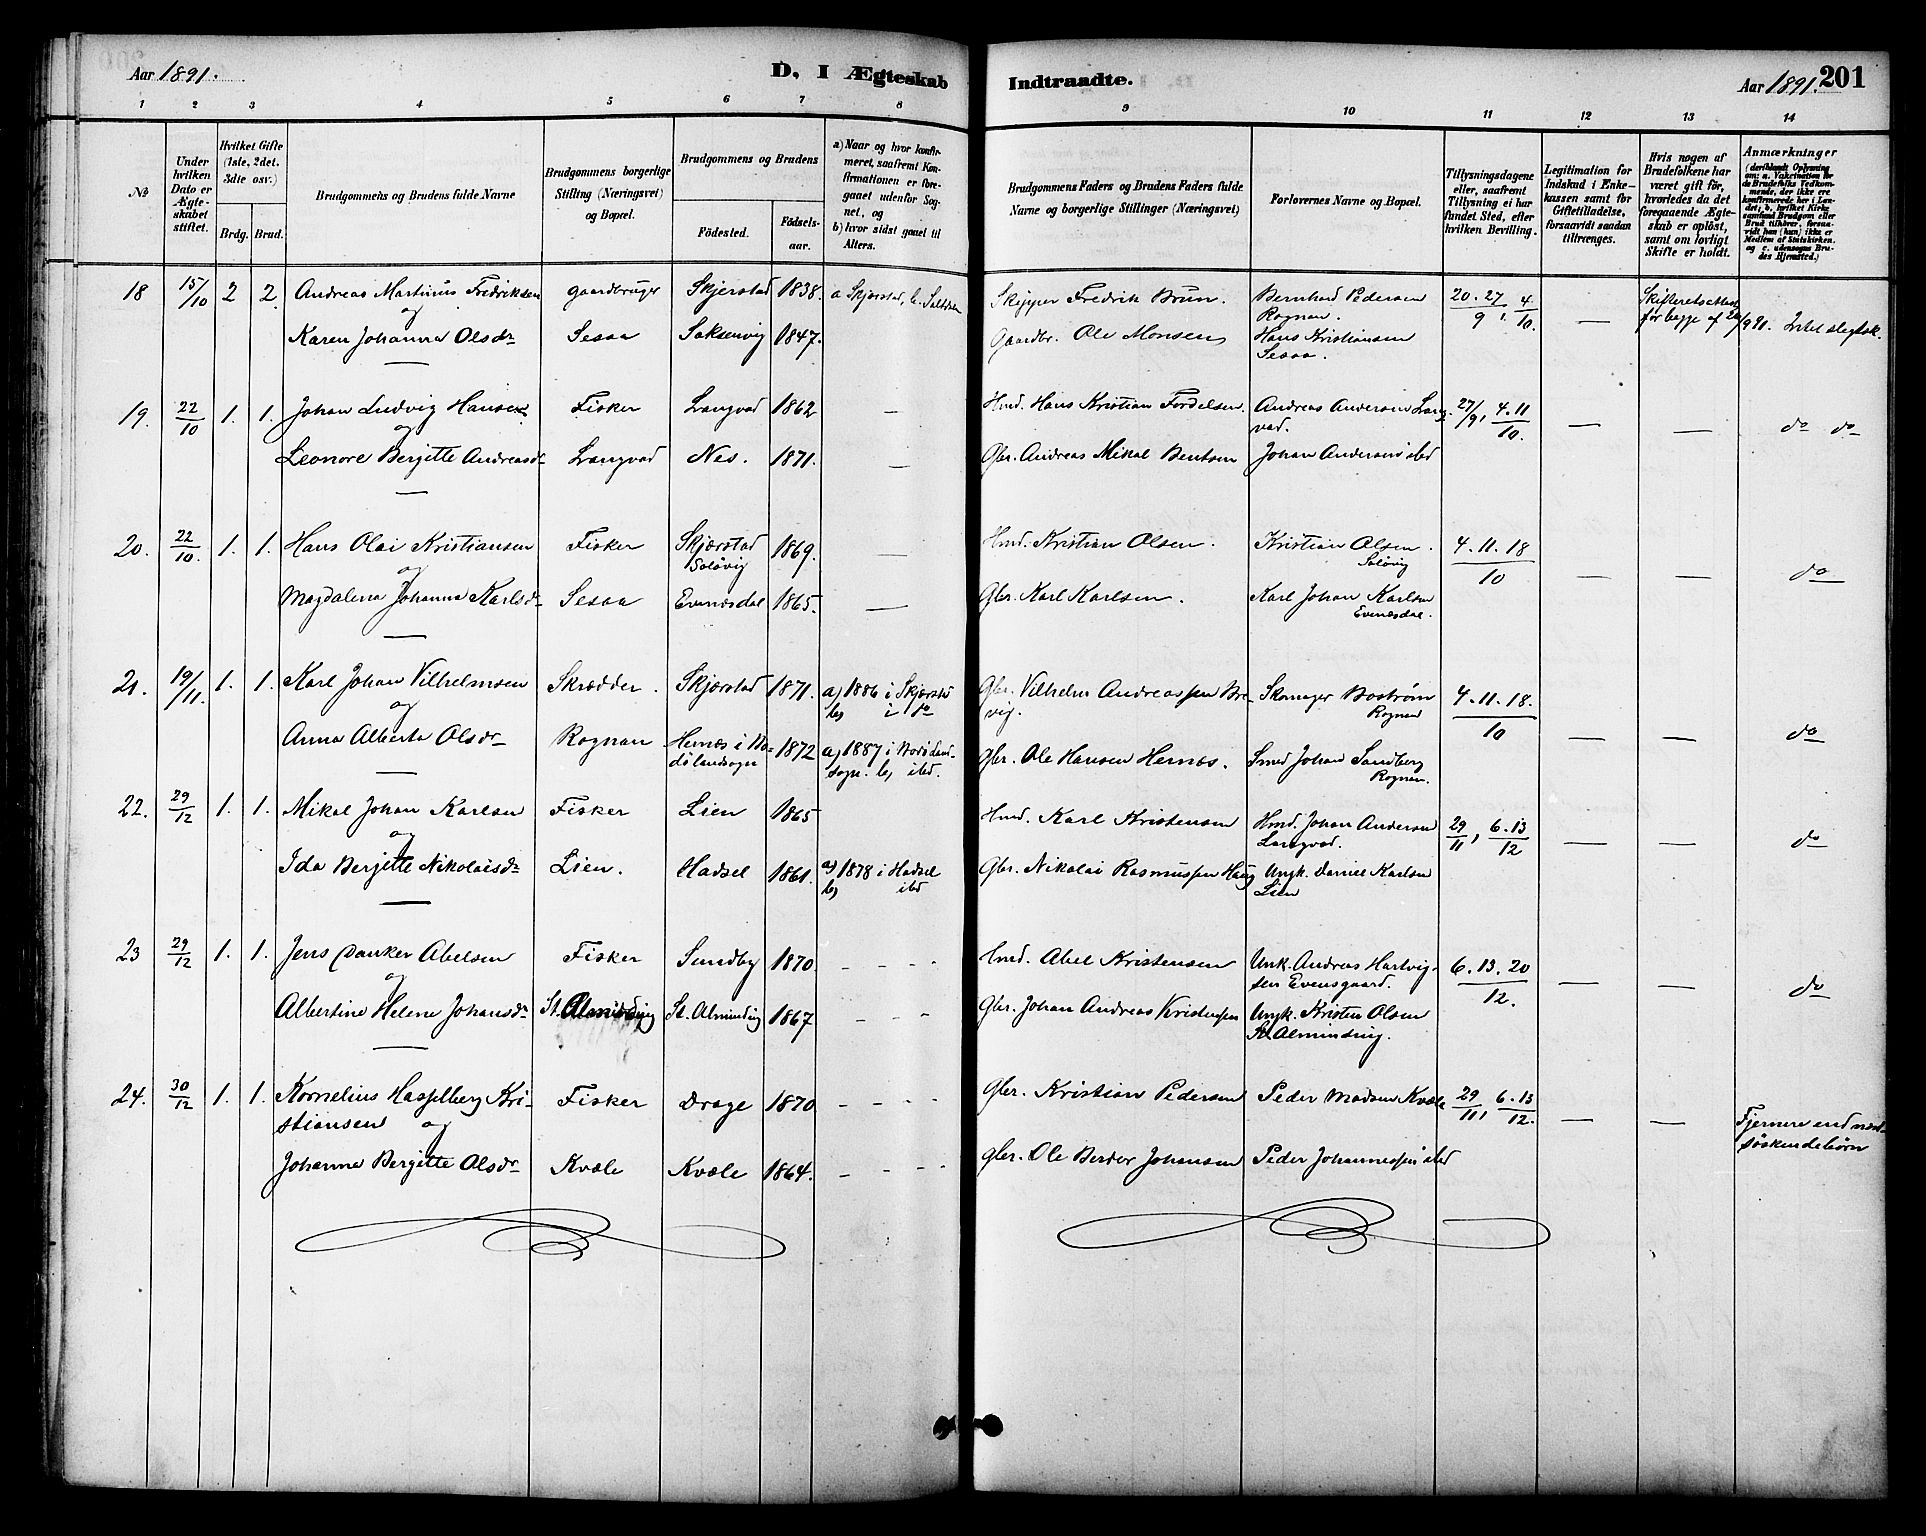 Aar 1891.
D. I Ægteskab
Indtraadte.
Aar 1891.
201
1 2 3 4 5 6 7 8 9 10 11 12 13 14
No
Under hvilken Dato er Ægteskabet stiftet.
Hvilket Gifte (1ste, 2det, 3die osv.)
Brdg. Brud.
Brudgommens og Brudens fulde Navne
Brudgommens borgerlige Stilling (Næringsvei) og Bopæl.
Brudgommens og Brudens
Födested.
Födsels-aar.
a) Naar og hvor konfirmeret, saafremt Konfirmationen er foregaaet udenfor Sognet, og
b) hvor sidst gaaet til Alters.
Brudgommens Faders og Brudens Faders fulde Navne og borgerlige Stillinger (Næringsvei)
Forlovernes Navne og Bopæl.
Tillysningsdagene eller, saafremt Tillysning ei har fundet Sted, efter hvilken Bevilling.
Legitimation for Indskud i Enkekassen samt for Giftetilladelse, forsaavidt saadan tiltrænges.
Hvis nogen af Brudefolkene har været gift før, hvorledes da det foregaaende Ægteskab er opløst, samt om lovligt Skifte er holdt.
Anmærkninger
18 15/10 2 2. Andreas Martinus Fredriksen gaardbruger Skjerstad 1838. a Skjerstad, b. Saltdalen Skipper Fredrik Brun. Bernhard Pedersen Rognan. 20. 27/9, 4/10. — Skifteretsattest for begge af
og
Karen Johanna Olsdr Sesaa Saksenvig 1847. Gaardbr. Ole Monsen Hans Kristiansen Sesaa. Intet slegtsk.
19. 22/10 1. 1. Johan Ludvig Hansen Fisker Langvad 1862 — Hmd. Hans Kristian Fordelsen. Andreas Andersen Langvad. 27/9, 4. 11/10. — — do do
og
Leonore Berjitte Andreasdr Langvad Nes. 1871. — Gbr. Andreas Mikal Bentsen Johan Andersen ibd
20. 22/10. 1. 1. Hans Olai Kristiansen Fisker Skjerstad Soløvig 1869. — Hmd. Kristian Olsen. Kristian Olsen. Soløvig 4. 11. 18/10 — — do
og
Magdalena Johanna Karlsdr Sesaa Evenesdal 1865. — Gbr. Karl Karlsen. Karl Johan Karlsen Evenesdal.
21. 19/11. 1. 1. Karl Johan Vilhelmsen Skrædder. Skjerstad 1871. a) 1886 i Skjerstad b) i do Gbr. Vilhelm Andreassen Brevig. Skomager Boström Rognan 4. 11. 18./10 — — do
og
Anna Alberta Olsdr Rognan Hernes i Bodölandsogn 1872 a) 1887 i Bodö Landsogn. b) ibd. Gbr. Ole Hansen Hernes. Smed Johan Sandberg Rognan.
22. 29/12 1. 1. Mikal Johan Karlsen Fisker Lien 1865 Hmd. Karl Kristensen Hmd. Johan Andersen Langvad. 29/11, 6. 13/12 — — do
og
Ida Berjitte Nikolaisdr Lien. Hadsel 1861. a) 1878 i Hadsel b) ibd Gbr. Nikolai Rasmussen Haug Ungk. Daniel Karlsen Lien
23 29/12 1. 1. Jens Danker Abelsen Fisker Sundby 1870. - - - Hmd. Abel Kristensen Unk. Andreas Hartvigsen Evensgaard. 6. 13. 20/12. — — do
og
Albertine Helene Johansdr St. Almidding St. Alminding 1867 - - - Gbr. Johan Andreas Kristensen Ungk. Kristen Olsen St. Alminding.
24. 30/12 1. 1. Kornelius Hasselberg Kristiansen Fisker Drage 1870 - - - Gbr. Kristian Pedersen Peder Madsen Kvæle 29/11, 6. 13/12. — — Fjernere end næstsöskendebörn
og
Johanna Bergitte Olsdr Kvæle Kvæle 1864. - - - gbr. Ole Berder Johansen Peder Johannessen ibd